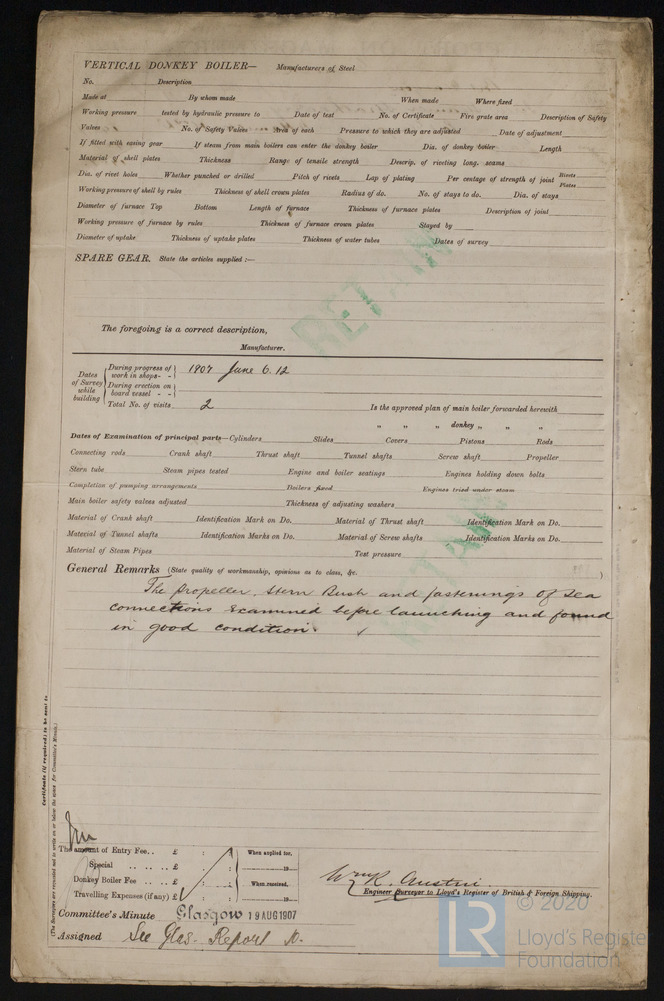 VERTICAL DONKEY BOILER— Manufacturers of Steel
No. Description
Made at By whom made When made Where fixed
Working pressure tested by hydraulic pressure to Date of test No. of Certificate Fire grate area Description of Safety
Valves No. of Safety Valves Area of each Pressure to which they are adjusted Date of adjustment
If fitted with easing gear If steam from main boilers can enter the donkey boiler Dia. of donkey boiler Length
Material of shell plates Thickness Range of tensile strength Descrip. of riveting long. seams
Dia. of rivet holes Whether punched or drilled Pitch of rivets Lap of plating Per centage of strength of joint Rivets Plates
Working pressure of shell by rules Thickness of shell crown plates Radius of do. No. of stays to do. Dia. of stays
Diameter of furnace Top Bottom Length of furnace Thickness of furnace plates Description of joint
Working pressure of furnace by rules Thickness of furnace crown plates Stayed by
Diameter of uptake Thickness of uptake plates Thickness of water tubes Dates of survey
SPARE GEAR. State the articles supplied :—
RETAIN
The foregoing is a correct description,
Manufacturer.
Dates of Survey while building
During progress of work in shops - - 1907 June 6. 12
During erection on board vessel - -
Total No. of visits 2 Is the approved plan of main boiler forwarded herewith
" " " donkey " " "
Dates of Examination of principal parts—Cylinders Slides Covers Pistons Rods
Connecting rods Crank shaft Thrust shaft Tunnel shafts Screw shaft Propeller
Stern tube Steam pipes tested Engine and boiler seatings Engines holding down bolts
Completion of pumping arrangements Boilers fixed Engines tried under steam
Main boiler safety valves adjusted Thickness of adjusting washers
Material of Crank shaft Identification Mark on Do. Material of Thrust shaft Identification Mark on Do.
Material of Tunnel shafts Identification Marks on Do. Material of Screw shafts Identification Marks on Do.
Material of Steam Pipes Test pressure
RETAIN
General Remarks (State quality of workmanship, opinions as to class, &c. )
The propeller, Stern Bush and fastenings of sea
connections examined before launching and found
in good condition.
Certificate (if required) to be sent to
(The Surveyors are requested not to write on or below the space for Committee's Minute.)
The amount of Entry Fee.. £ : : When applied for,
Special .. .. .. £ : : 19
Donkey Boiler Fee .. .. £ : : When received,
Travelling Expenses (if any) £ : : 19
Wm R. Austin
Engineer Surveyor to Lloyd's Register of British & Foreign Shipping.
Committee's Minute Glasgow 19 AUG 1907
Assigned See Glas. Report
LR
© 2020
Lloyd's Register
Foundation